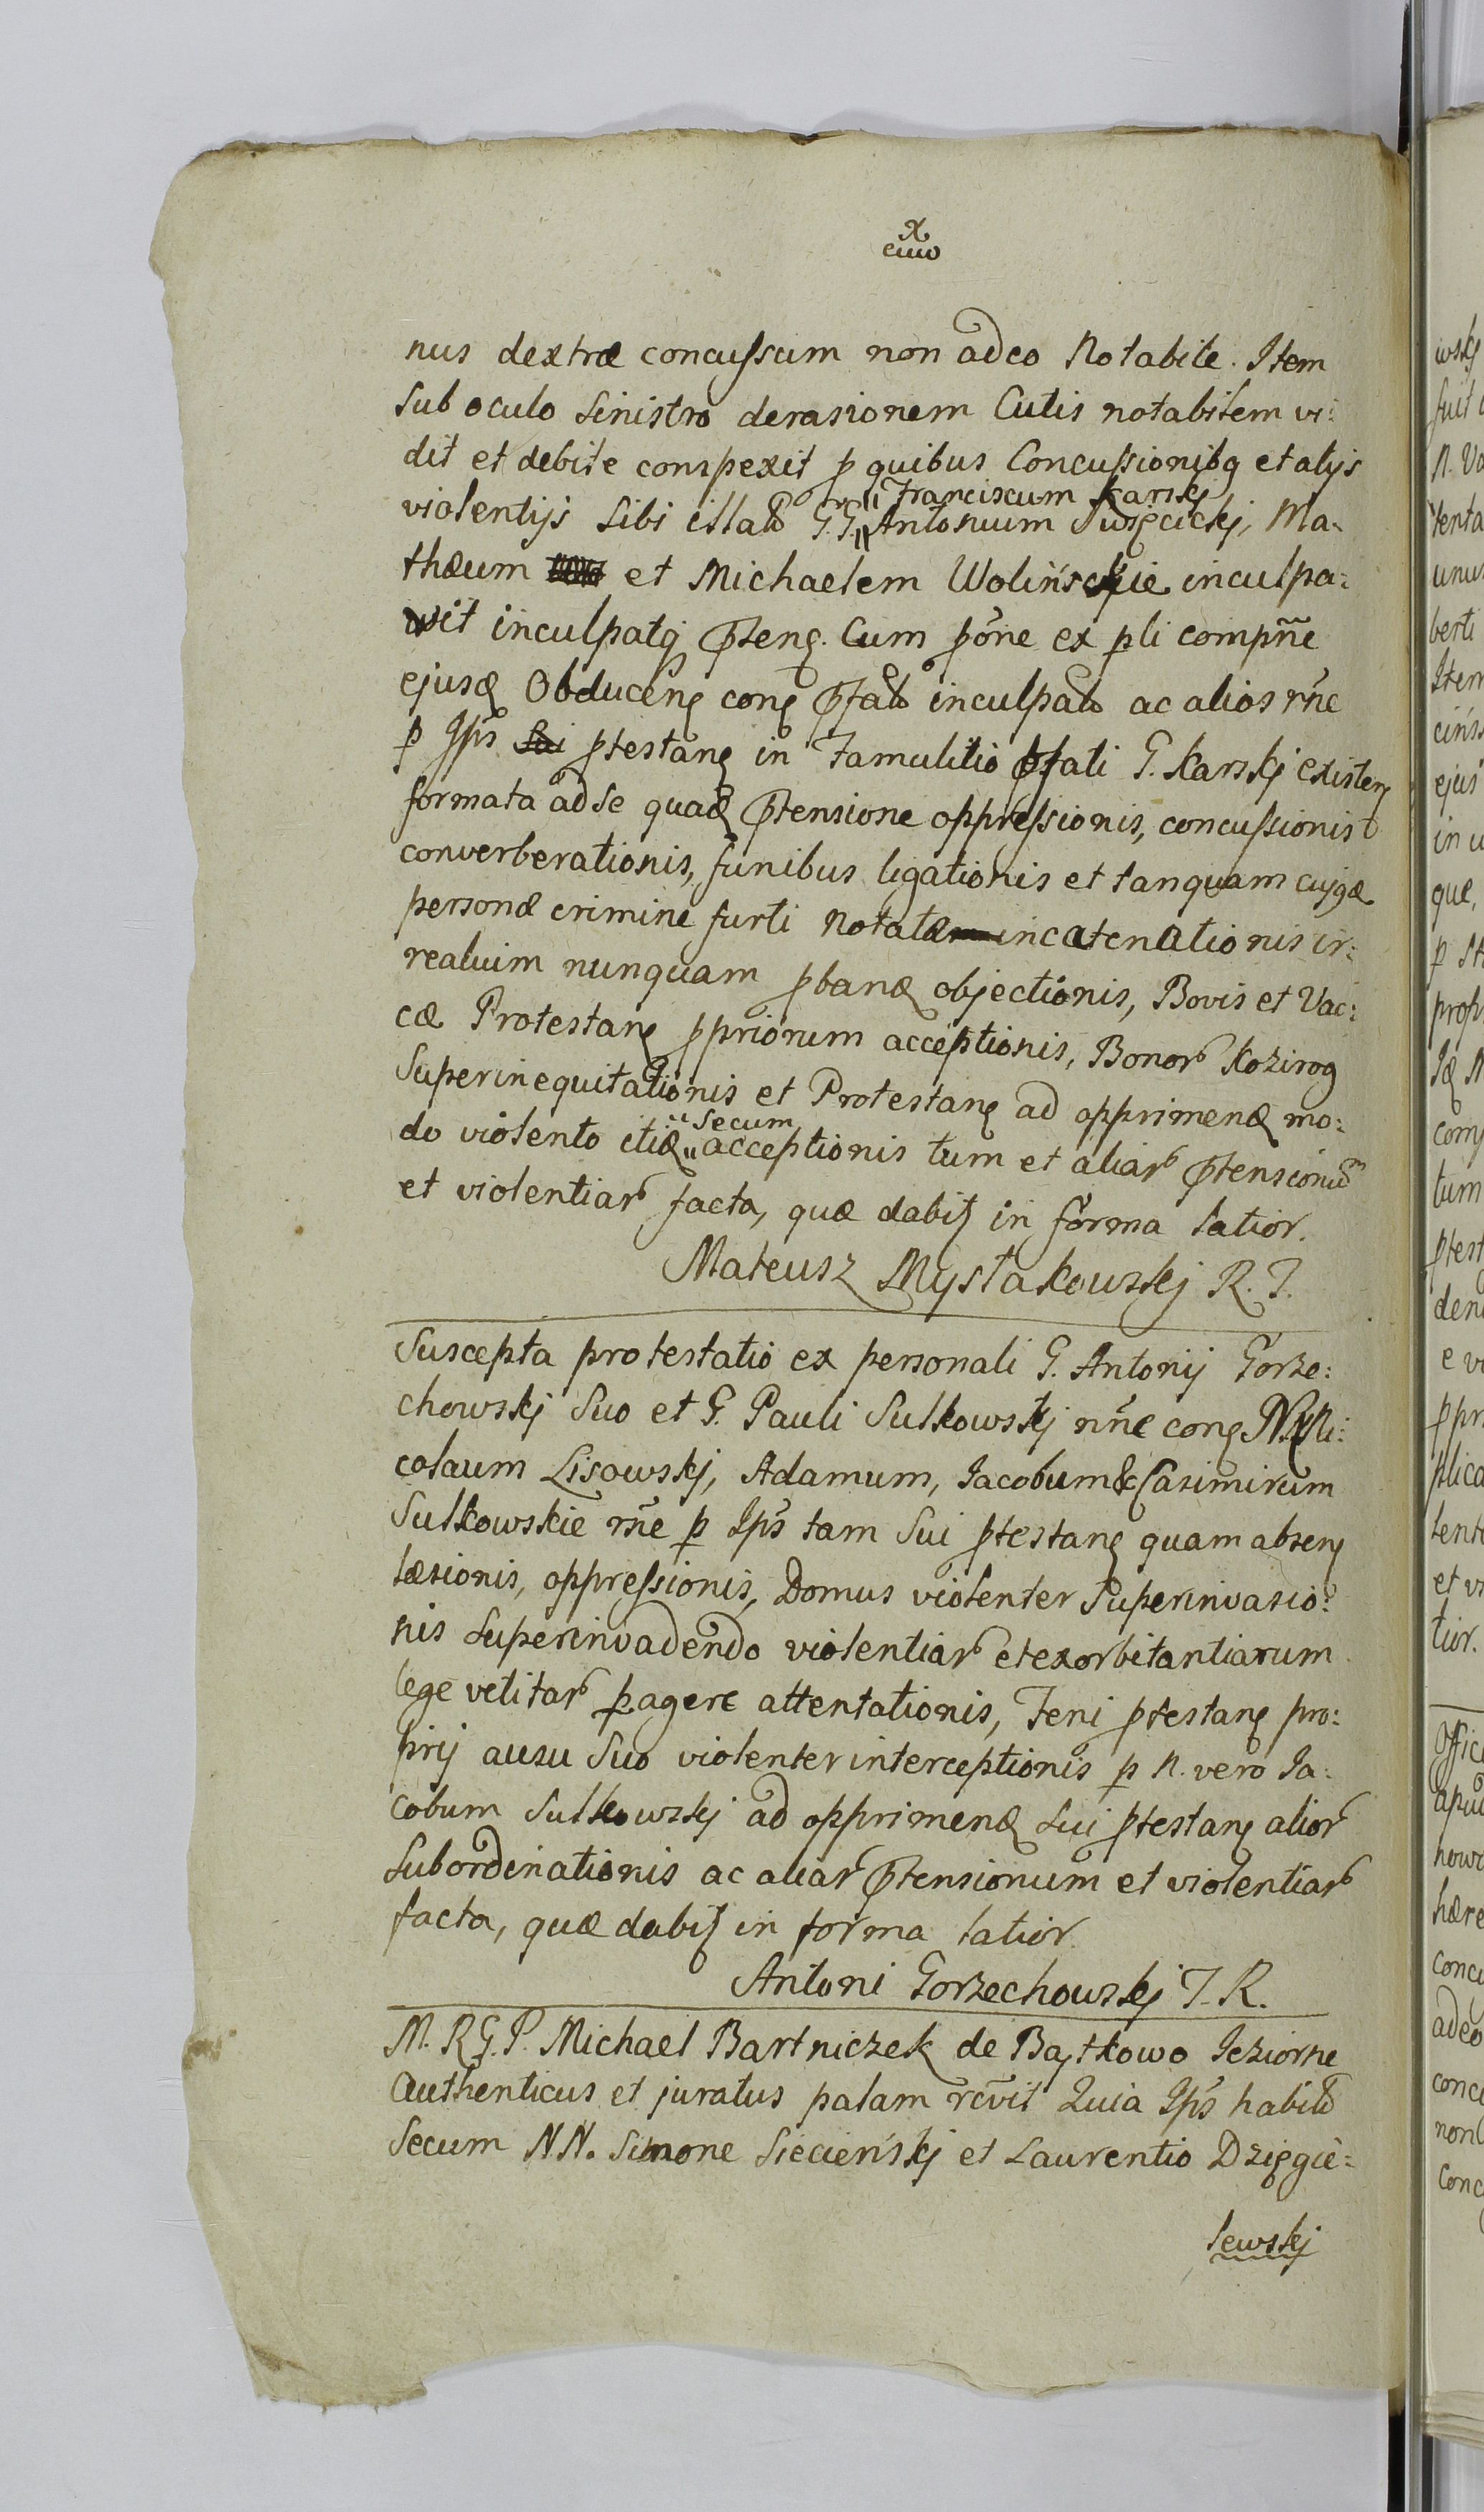 x
nus dextræ concussum non adeo Notabile. Item
Sub oculo Sinistro derasionem Cutis notabilem vi:
dit et debite conspexit p quibus Concussionibq et alijs
violentijs Sibi illato G.G. "Franciscum Karskj Antonium Swięcickj, Ma-
thæum et Michaelem Wolińsckie inculpa:
vit inculpatq Ptenꝫ. Cum põne ex pli compñe
ejusꝫ Obducenꝫ conꝫ Pfato inculpato ac alios rñe
p Ips Sui ptestanꝫ in Famulitio pfati G. Karskj existenꝫ
formata ad se quaꝫ Ptensione oppressionis, concussionis
converberationis, funibus ligationis et tanquam cujqæ
personæ crimine furti Notatæ incatenationis ir:
realuim nunquam pbanꝫ objectionis, Bovis et Vac:
cæ Protestanꝫ ppriorum acceptionis, Bonor Kozirog
Superinequitationis et Protestanꝫ ad opprimenꝫ mo:
do violento itiꝫ "Secum acceptionis tum et aliar Ptensionũ
et violentiar facta, quæ dabit in forma latior.
Mateusz Mystakowskj R. T.
Suscepta protestatio ex personali G. Antonij Gorze:
chowskj Suo et G. Pauli Sulkowskj nñe conꝫ NN Ni:
colaum Lisowskj, Adamum, Iacobum & Casimirum
Sulkowskie rñe p Ips tam Sui ptestanꝫ quam absenꝫ
læsionis, oppressionis, Domus violenter Superinvasio:
nis Superinvadendo violentiar et exorbitantiarum
lege vetitar pagere attentationis, Feni ptestanꝫ pro:
prij ausu Suo violenter interceptionis p N. vero Ia:
cobum Sulkowskj ad opprimenꝫ Sui ptestanꝫ alior
Subordinationis ac aliar Ptensionum et violentiar
facta, quæ dabit in forma latior.
Antoni Gorzechowskj T. R.
M. R G. P. Michael Bartniczek de Baytkowo Ieziorne
Authenticus et juratus palam rcvit Quia Ips habitõ
Secum NN. Simone Siecieńskj et Laurentio Dzięgie:
lewskj